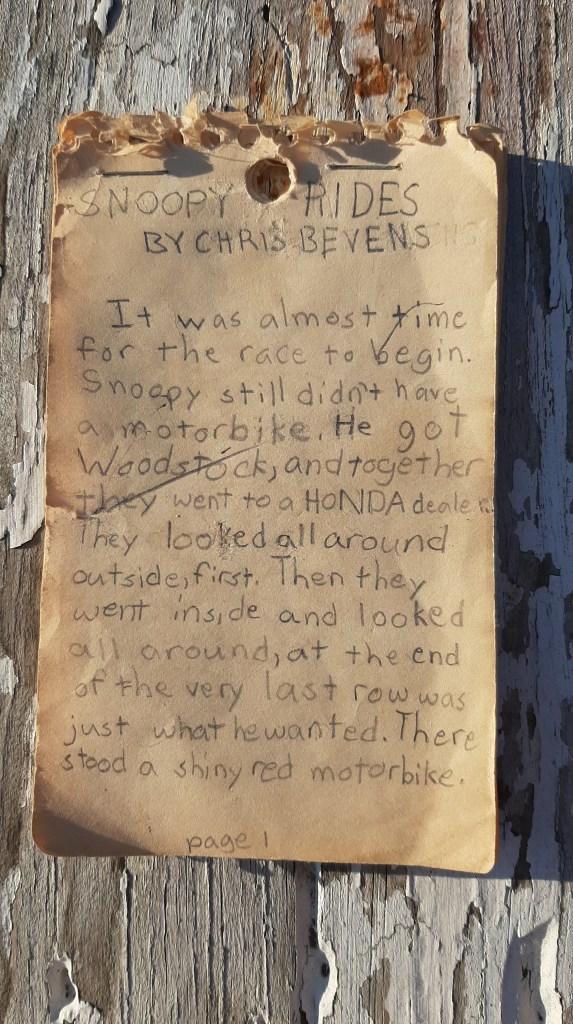 SNOOPY RIDES
BY CHRIS BEVENS
It was almost time
for the race to begin.
Snoopy still didn't have
a motorbike. He got
Woodstock, and together
they went to a HONDA dealer.
They looked all around
outside, first. Then they
went inside and looked
all around, at the end
of the very last row was
just what he wanted. There
stood a shiny red motorbike.
page 1